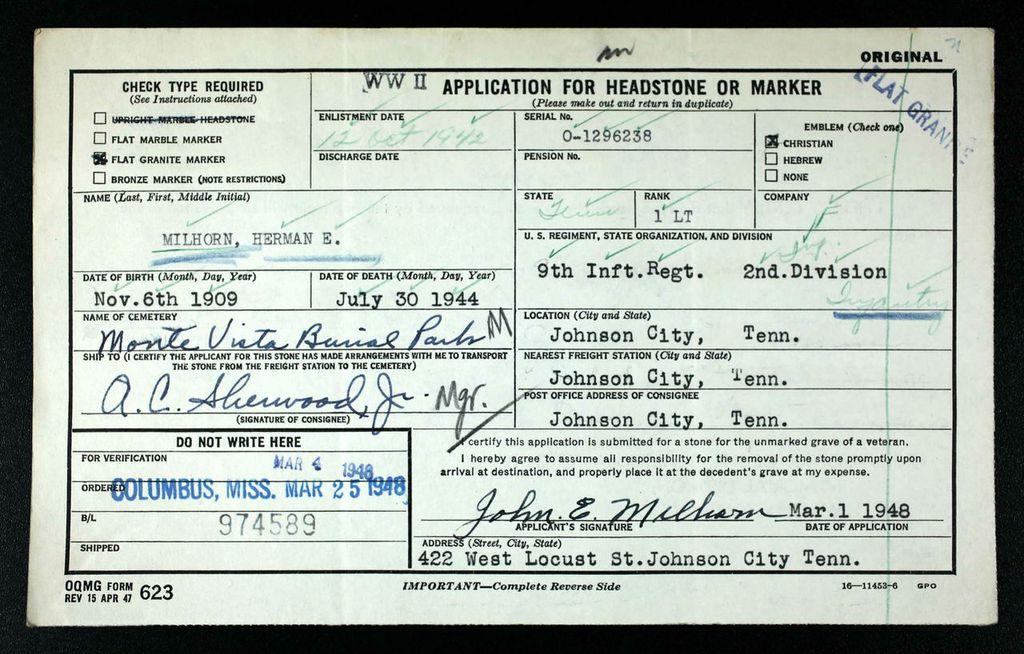 ORIGINAL
FLAT GRANITE
CHECK TYPE REQUIRED
(See Instructions attached)
UPRIGHT MARBLE HEADSTONE
FLAT MARBLE MARKER
FLAT GRANITE MARKER
BRONZE MARKER (NOTE RESTRICTIONS)
WW II
APPLICATION FOR HEADSTONE OR MARKER
(Please make out and return in duplicate)
ENLISTMENT DATE
12 Oct 1942
DISCHARGE DATE
SERIAL No.
O-1296238
PENSION No.
EMBLEM (Check one)
CHRISTIAN
HEBREW
NONE
NAME (Last, First, Middle Initial)
MILHORN, HERMAN E.
STATE
Tenn
RANK
1 LT
COMPANY
F
U. S. REGIMENT, STATE ORGANIZATION, AND DIVISION
Inf.
9th Inft.Regt. 2nd.Division
Infantry
DATE OF BIRTH (Month, Day, Year)
Nov.6th 1909
DATE OF DEATH (Month, Day, Year)
July 30 1944
NAME OF CEMETERY
Monte Vista Burial Park M
LOCATION (City and State)
Johnson City, Tenn.
SHIP TO (I CERTIFY THE APPLICANT FOR THIS STONE HAS MADE ARRANGEMENTS WITH ME TO TRANSPORT
THE STONE FROM THE FREIGHT STATION TO THE CEMETERY)
A. C. Sherwood, Jr. Mgr.
(SIGNATURE OF CONSIGNEE)
NEAREST FREIGHT STATION (City and State)
Johnson City, Tenn.
POST OFFICE ADDRESS OF CONSIGNEE
Johnson City, Tenn.
DO NOT WRITE HERE
FOR VERIFICATION
MAR 4 1948
ORDERED
COLUMBUS, MISS. MAR 25 1948
B/L
974589
SHIPPED
I certify this application is submitted for a stone for the unmarked grave of a veteran.
I hereby agree to assume all responsibility for the removal of the stone promptly upon
arrival at destination, and properly place it at the decedent's grave at my expense.
John. E. Milhorn Mar.1 1948
APPLICANT'S SIGNATURE DATE OF APPLICATION
ADDRESS (Street, City, State)
422 West Locust St.Johnson City Tenn.
OQMG FORM 623
REV 15 APR 47
IMPORTANT—Complete Reverse Side
16—11453-6 GPO